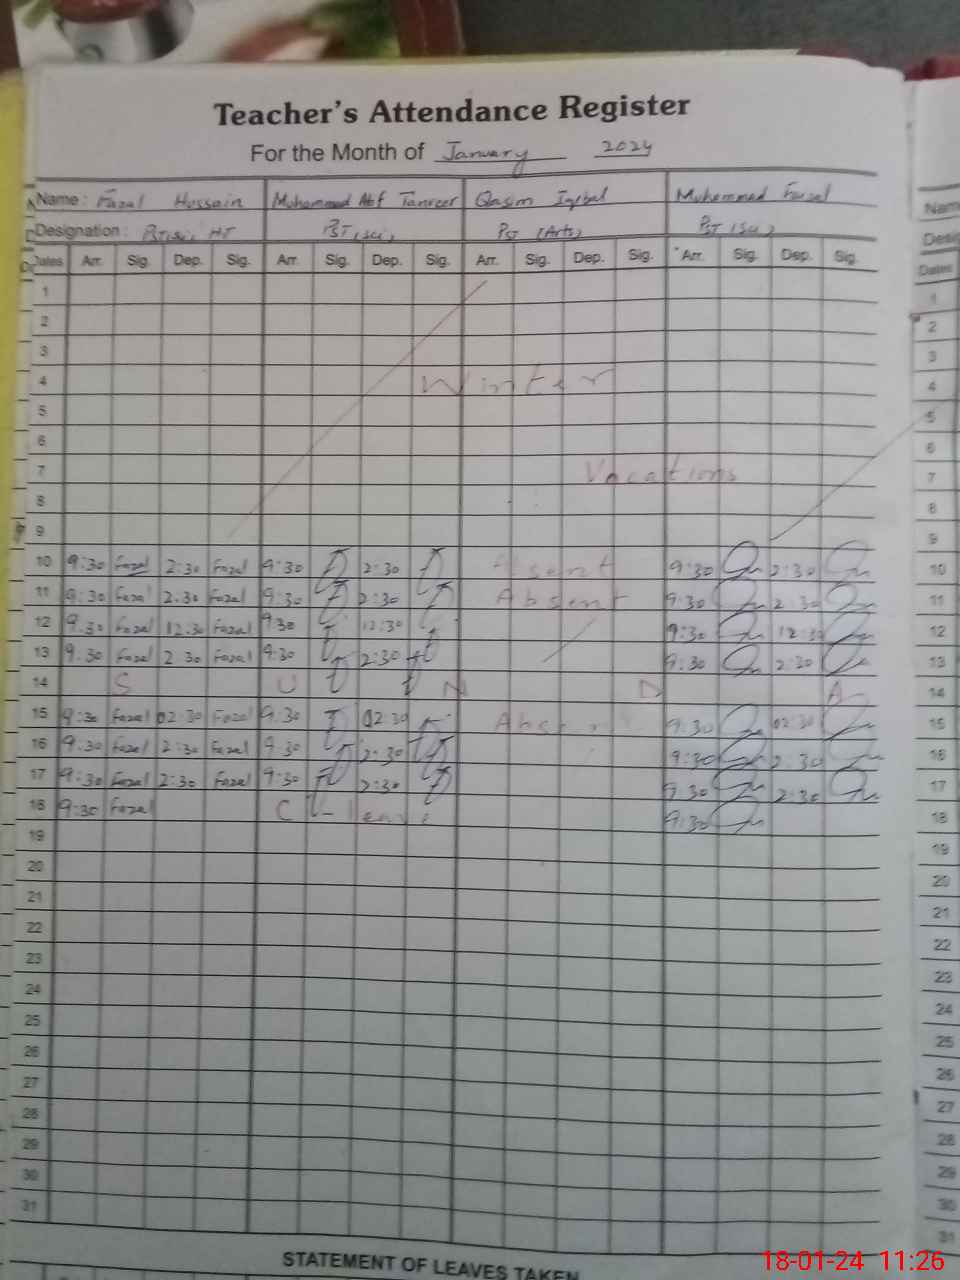 Teacher's Attendance Register
For the Month of January 2024
Name: Fazal Hussain Muhammad Tanveer Qasim Iqbal Muhammad Faisal
Designation: HT PST (Arts)
Dates Arr. Sig. Dep. Sig. Arr. Sig. Dep. Sig. Arr. Sig. Dep. Sig. Arr. Sig. Dep. Sig.
1
2
3
4 Winter
5
6
7 Vacations
8
9
10 9:30 Fazal 2:30 Fazal 9:30 2:30 Absent 9:30 2:30
11 9:30 Fazal 2:30 Fazal 9:30 2:30 Absent 9:30 2:30
12 9:30 Fazal 12:30 Fazal 9:30 12:30 9:30 12:30
13 9:30 Fazal 2:30 Fazal 9:30 2:30 9:30 2:30
14 S U N D A
15 9:30 Fazal 02:30 Fazal 9:30 02:30 Absent 9:30 02:30
16 9:30 Fazal 2:30 Fazal 9:30 2:30 9:30 2:30
17 9:30 Fazal 2:30 Fazal 9:30 2:30 9:30 2:30
18 9:30 Fazal C-leave 9:30
19
20
21
22
23
24
25
26
27
28
29
30
31
STATEMENT OF LEAVES TAKEN
Dates
1
2
3
4
5
6
7
8
9
10
11
12
13
14
15
16
17
18
19
20
21
22
23
24
25
26
27
28
29
30
31
18-01-24 11:26